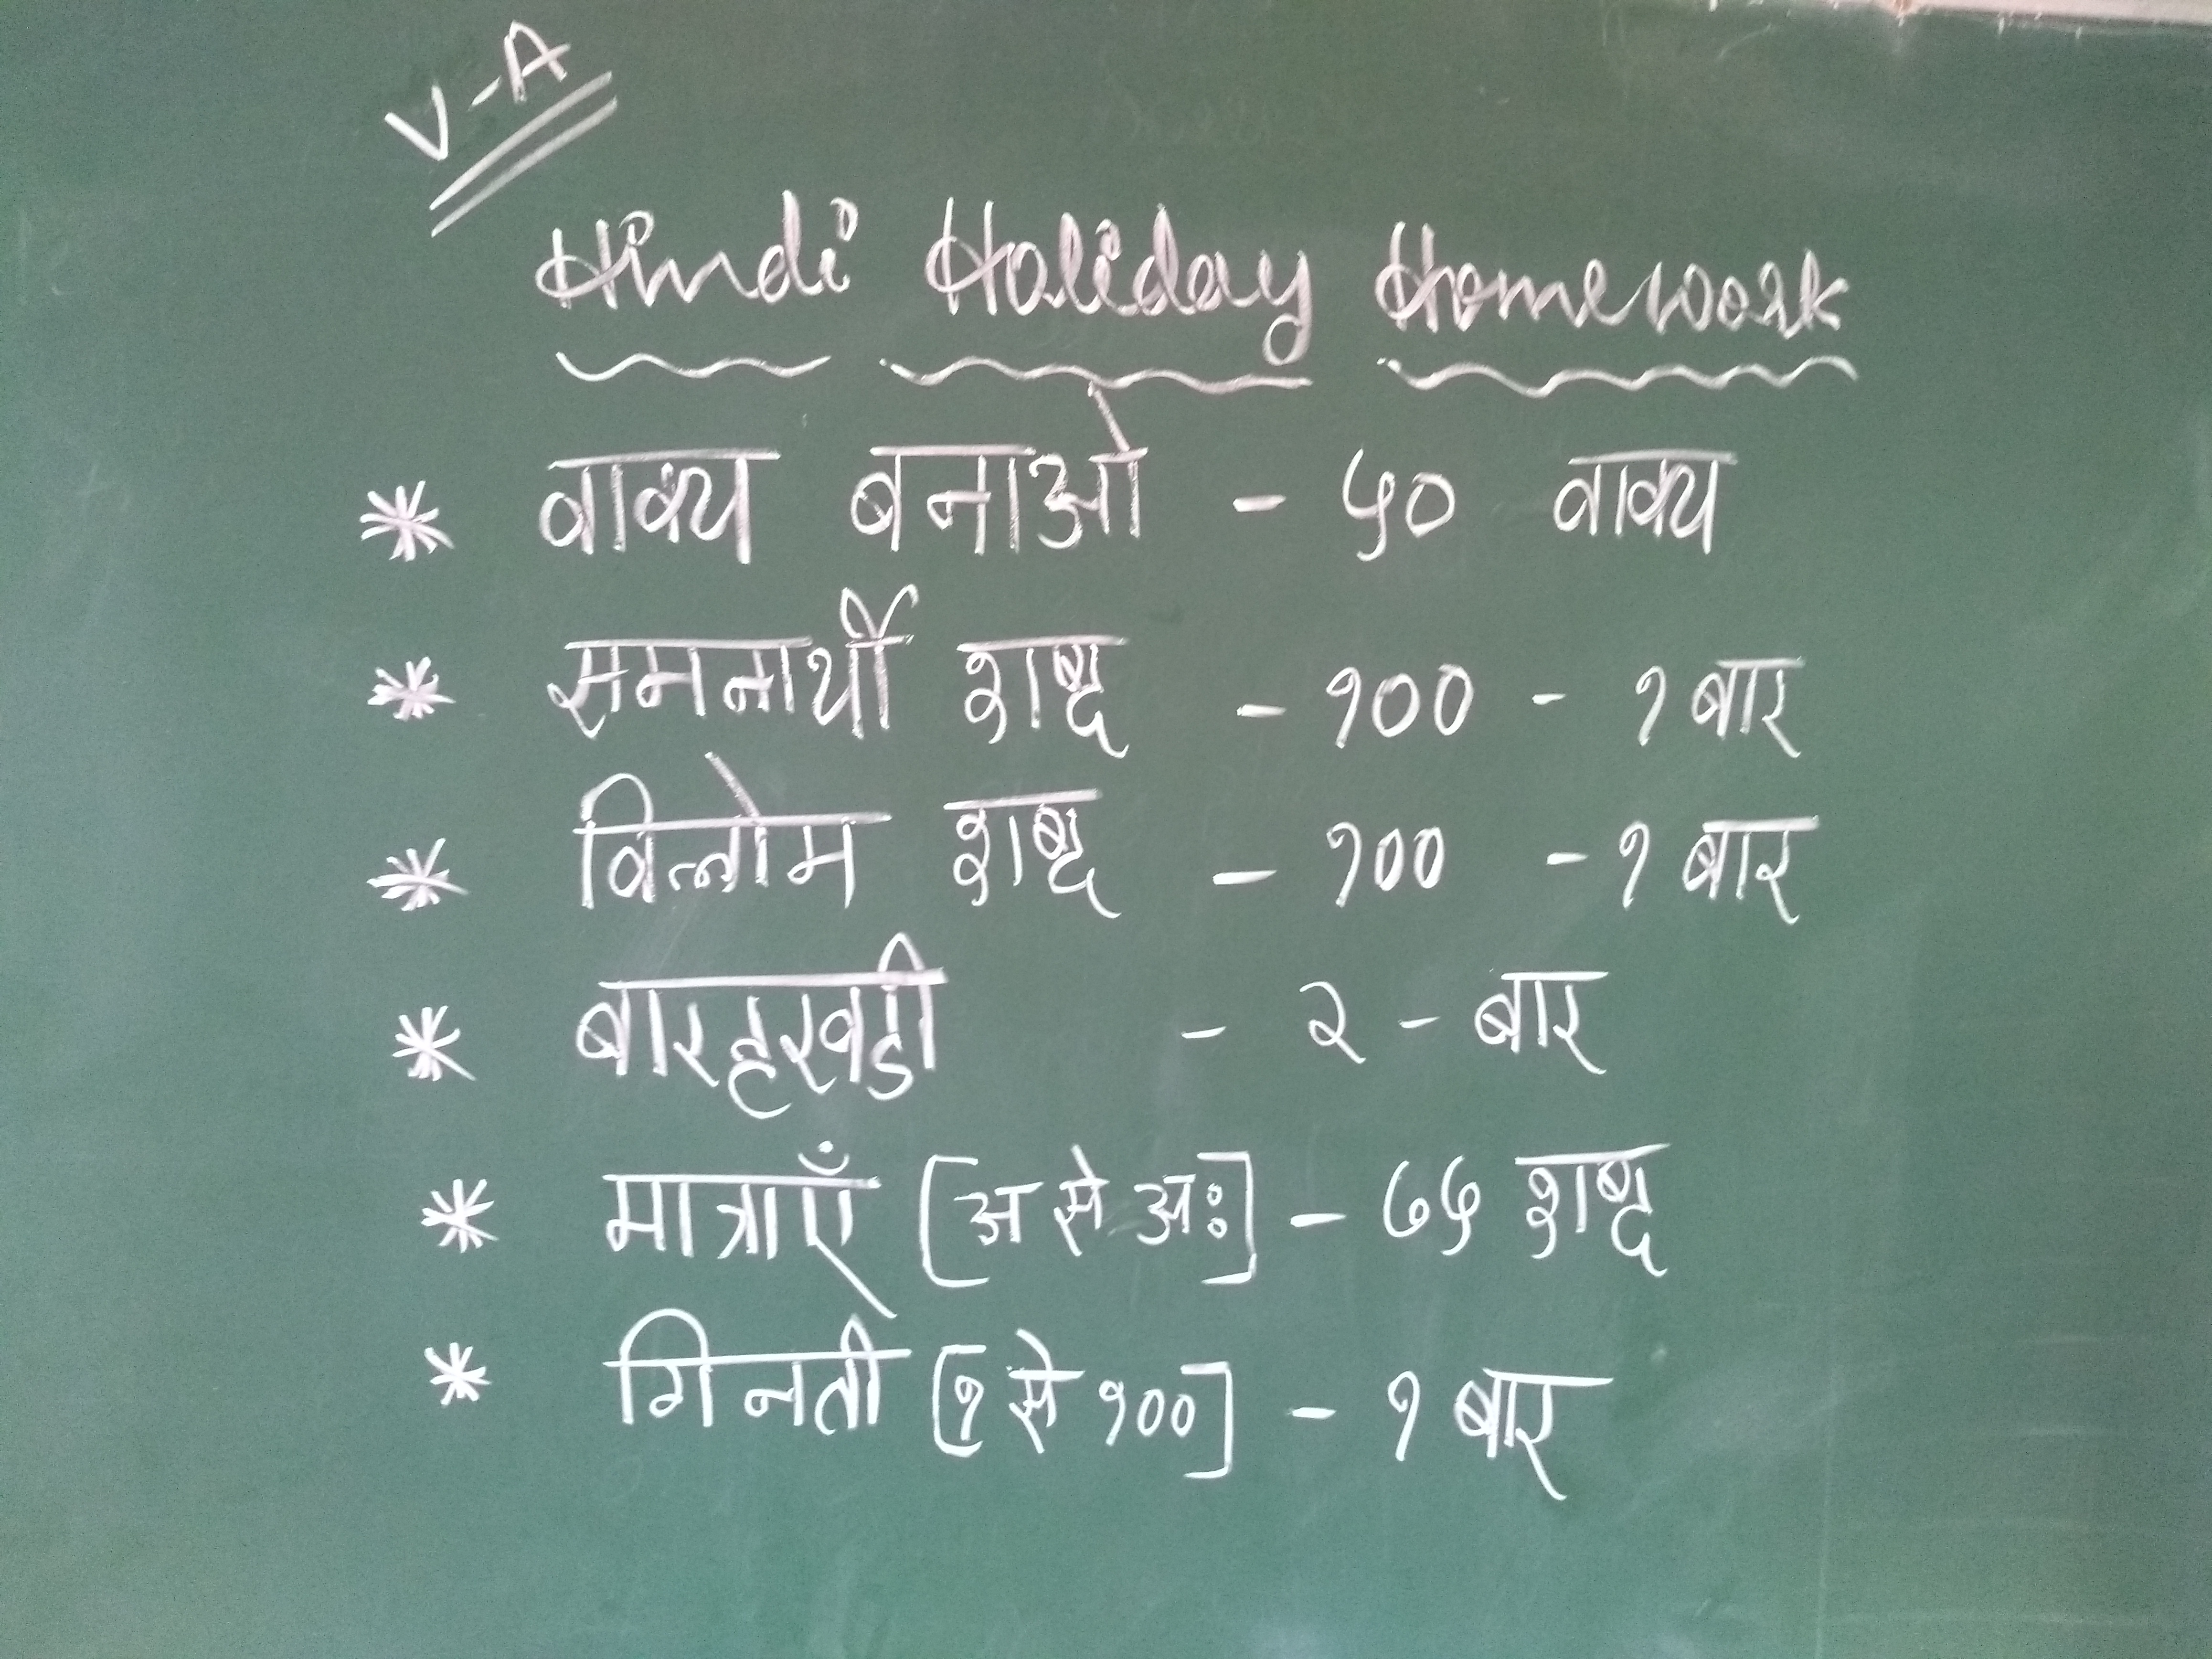 V-A
Hindi Holiday Homework
* वाक्य बनाओ - ५० वाक्य
* समनार्थी शब्द - १०० - १ बार
* विलोम शब्द - १०० - १ बार
* बारहखडी - २ - बार
* मात्राएँ [अ से अः] - ७५ शब्द
* गिनती [१ से १००] - १ बार